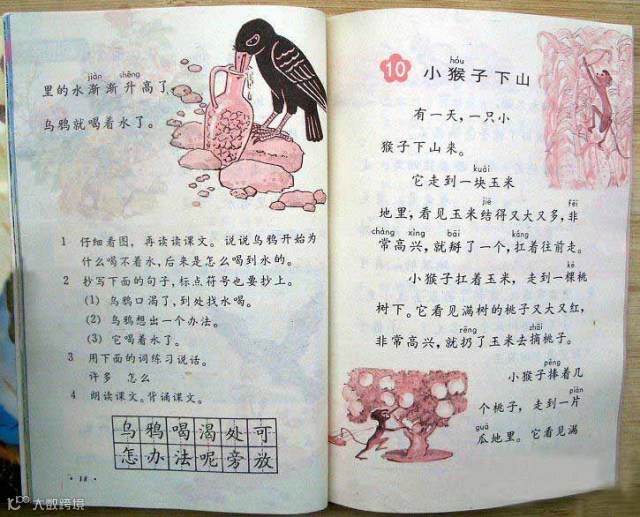 jiàn shēng
里的水渐渐升高了,
乌鸦就喝着水了。
1 仔细看图,再读读课文。说说乌鸦开始为
什么喝不着水,后来是怎么喝到水的。
2 抄写下面的句子,标点符号也要抄上。
(1) 乌鸦口渴了,到处找水喝。
(2) 乌鸦想出一个办法。
(3) 它喝着水了。
3 用下面的词练习说话。
许多 怎么
4 朗读课文。背诵课文。
乌鸦喝渴处可
怎办法呢旁放
· 18 ·
hóu
10 小猴子下山
有一天,一只小
猴子下山来。
kuài
它走到一块玉米
jiē fēi
地里,看见玉米结得又大又多,非
cháng xìng bāi káng
常高兴,就掰了一个,扛着往前走。
kē
小猴子扛着玉米,走到一棵桃
树下。它看见满树的桃子又大又红,
rēng zhāi
非常高兴,就扔了玉米去摘桃子。
pěng
小猴子捧着几
piàn
个桃子,走到一片
guā
瓜地里。它看见满
大数跨境